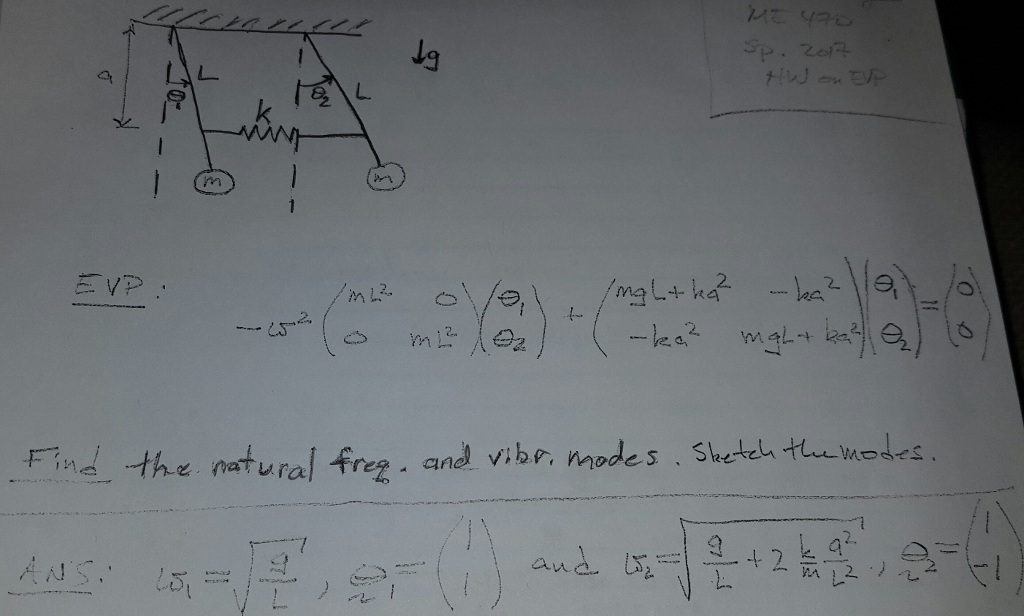 ME 470
Sp. 2017
HW on EVP
↓g
a
θ₁ L
θ₂ L
k
m
m
EVP: -ω² (mL² 0; 0 mL²) (θ₁; θ₂) + (mgL+ka² -ka²; -ka² mgL+ka²) (θ₁; θ₂) = (0; 0)
Find the natural freq. and vibr. modes. Sketch the modes.
ANS: ω₁ = √(g/L), θ₁ = (1; 1) and ω₂ = √(g/L + 2 k/m a²/L²), θ₂ = (1; -1)